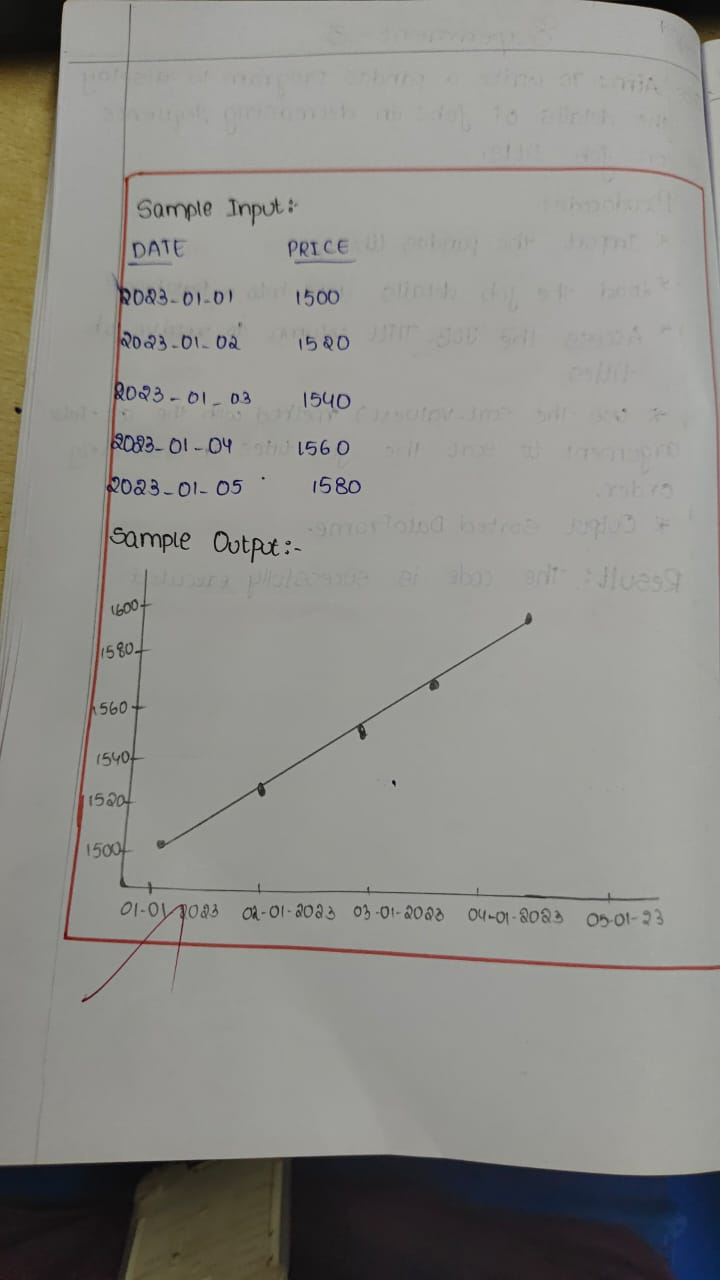 Sample Input:-
DATE PRICE
2023-01-01 1500
2023-01-02 1520
2023-01-03 1540
2023-01-04 1560
2023-01-05 1580
Sample Output:-
1600
1580
1560
1540
1520
1500
01-01 2023 02-01-2023 03-01-2023 04-01-2023 05-01-23